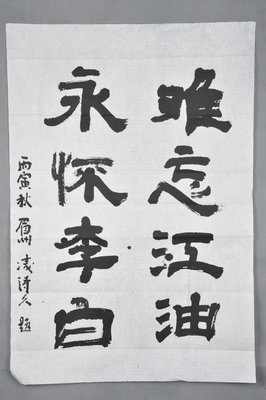 难忘江油
永怀李白
丙寅秋 眉州 凌 久 题